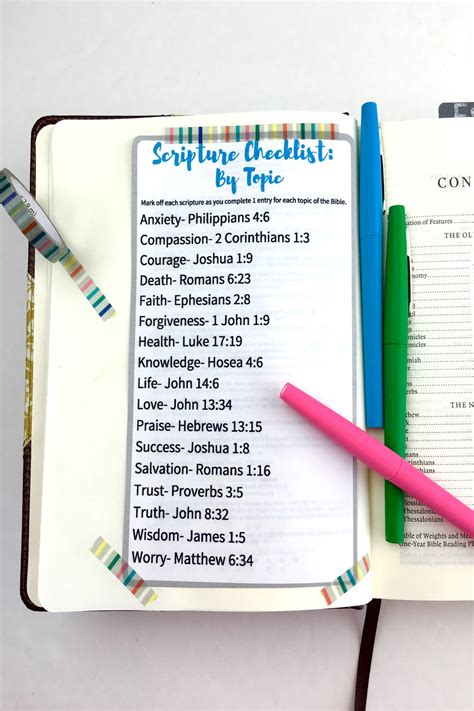 Scripture Checklist:
By Topic
Mark off each scripture as you complete 1 entry for each topic of the Bible.
Anxiety- Philippians 4:6
Compassion- 2 Corinthians 1:3
Courage- Joshua 1:9
Death- Romans 6:23
Faith- Ephesians 2:8
Forgiveness- 1 John 1:9
Health- Luke 17:19
Knowledge- Hosea 4:6
Life- John 14:6
Love- John 13:34
Praise- Hebrews 13:15
Success- Joshua 1:8
Salvation- Romans 1:16
Trust- Proverbs 3:5
Truth- John 8:32
Wisdom- James 1:5
Worry- Matthew 6:34
CON
ation of Features
THE OL
onomy
THE N
Table of Weights and Me
One-Year Bible Reading Pl